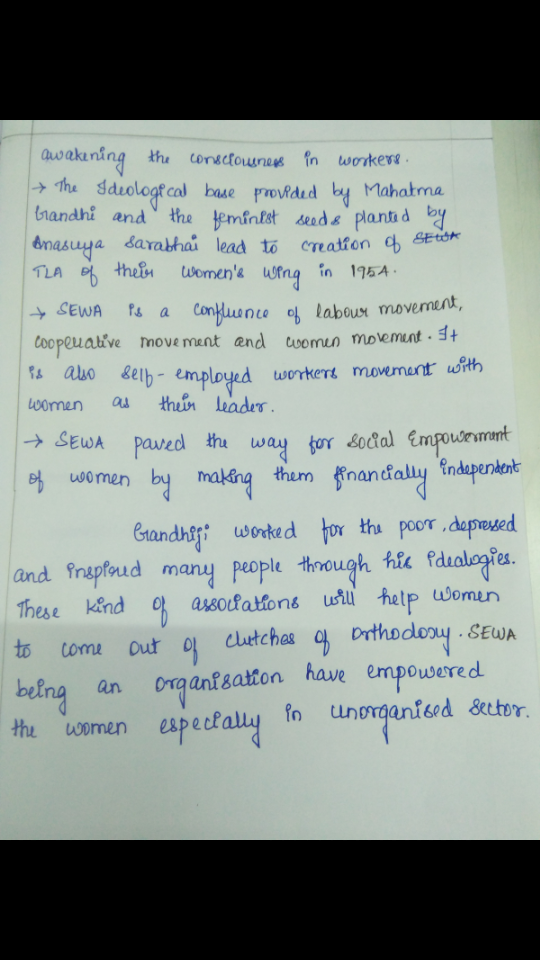 awakening the consciousness in workers.
→ The Ideological base provided by Mahatma
Gandhi and the feminist seeds planted by
Anasuya Sarabhai lead to creation of SEWA
TLA of their women's wing in 1954.
→ SEWA is a confluence of labour movement,
cooperative movement and women movement. It
is also self-employed workers movement with
women as their leader.
→ SEWA paved the way for social Empowerment
of women by making them financially independent
Gandhiji worked for the poor, depressed
and inspired many people through his idealogies.
These kind of associations will help women
to come out of clutches of orthodoxy. SEWA
being an organisation have empowered
the women especially in unorganised sector.